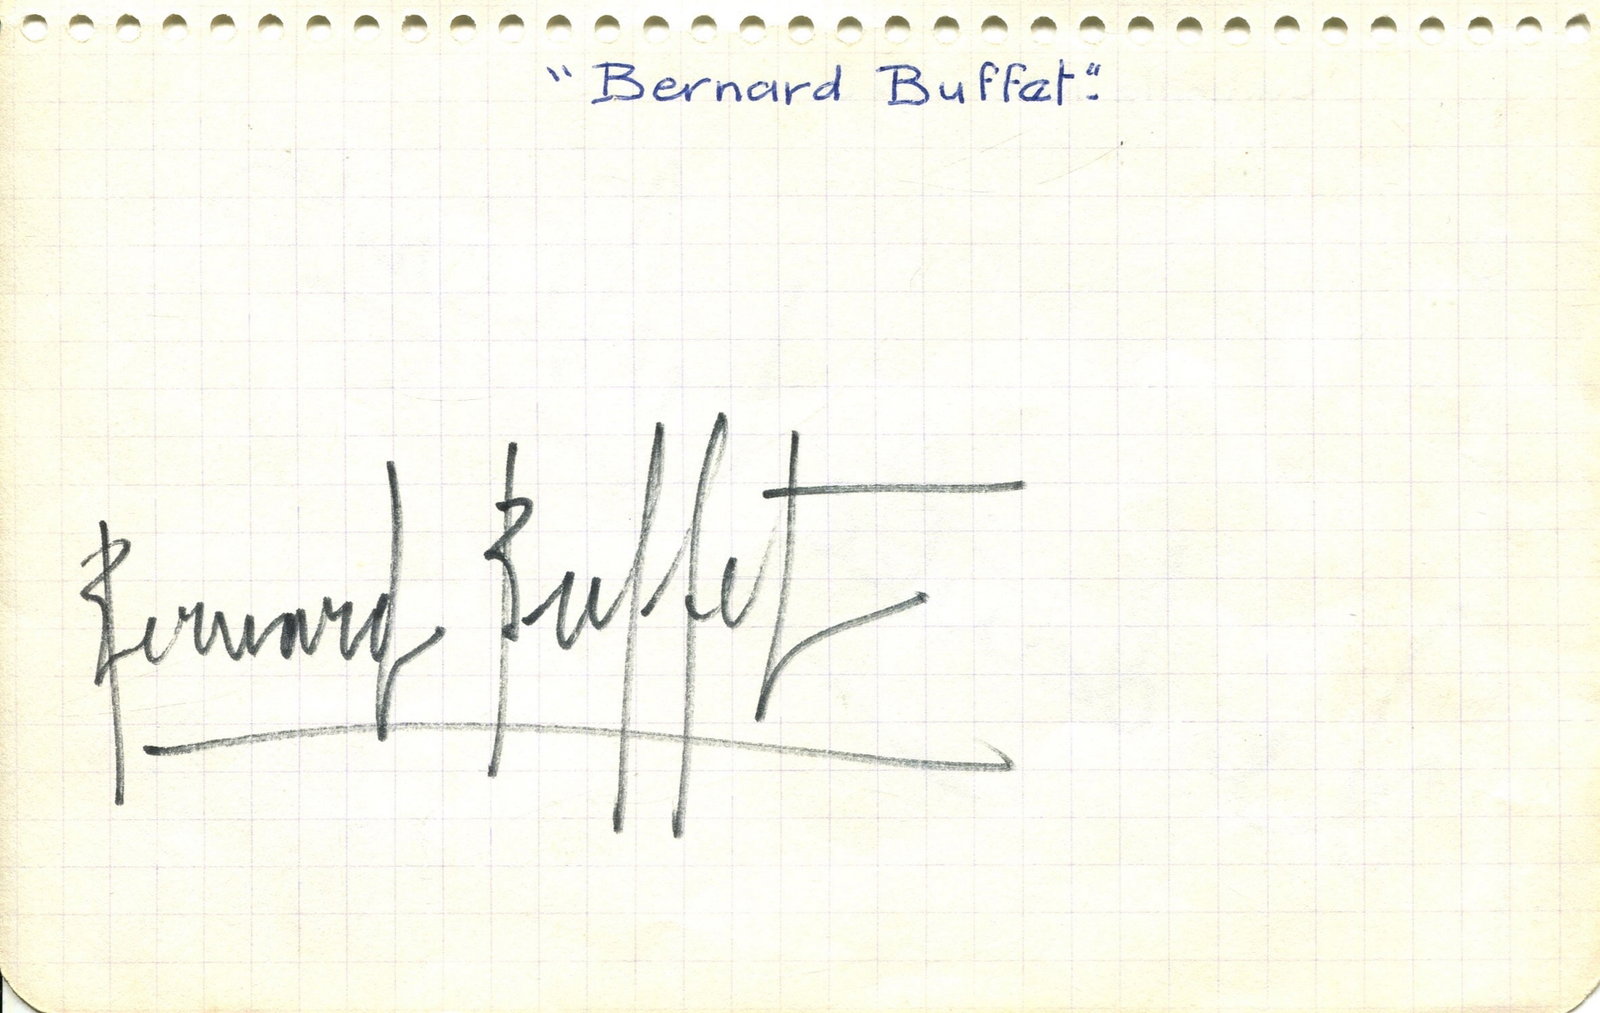 "Bernard Buffet".
Bernard Buffet